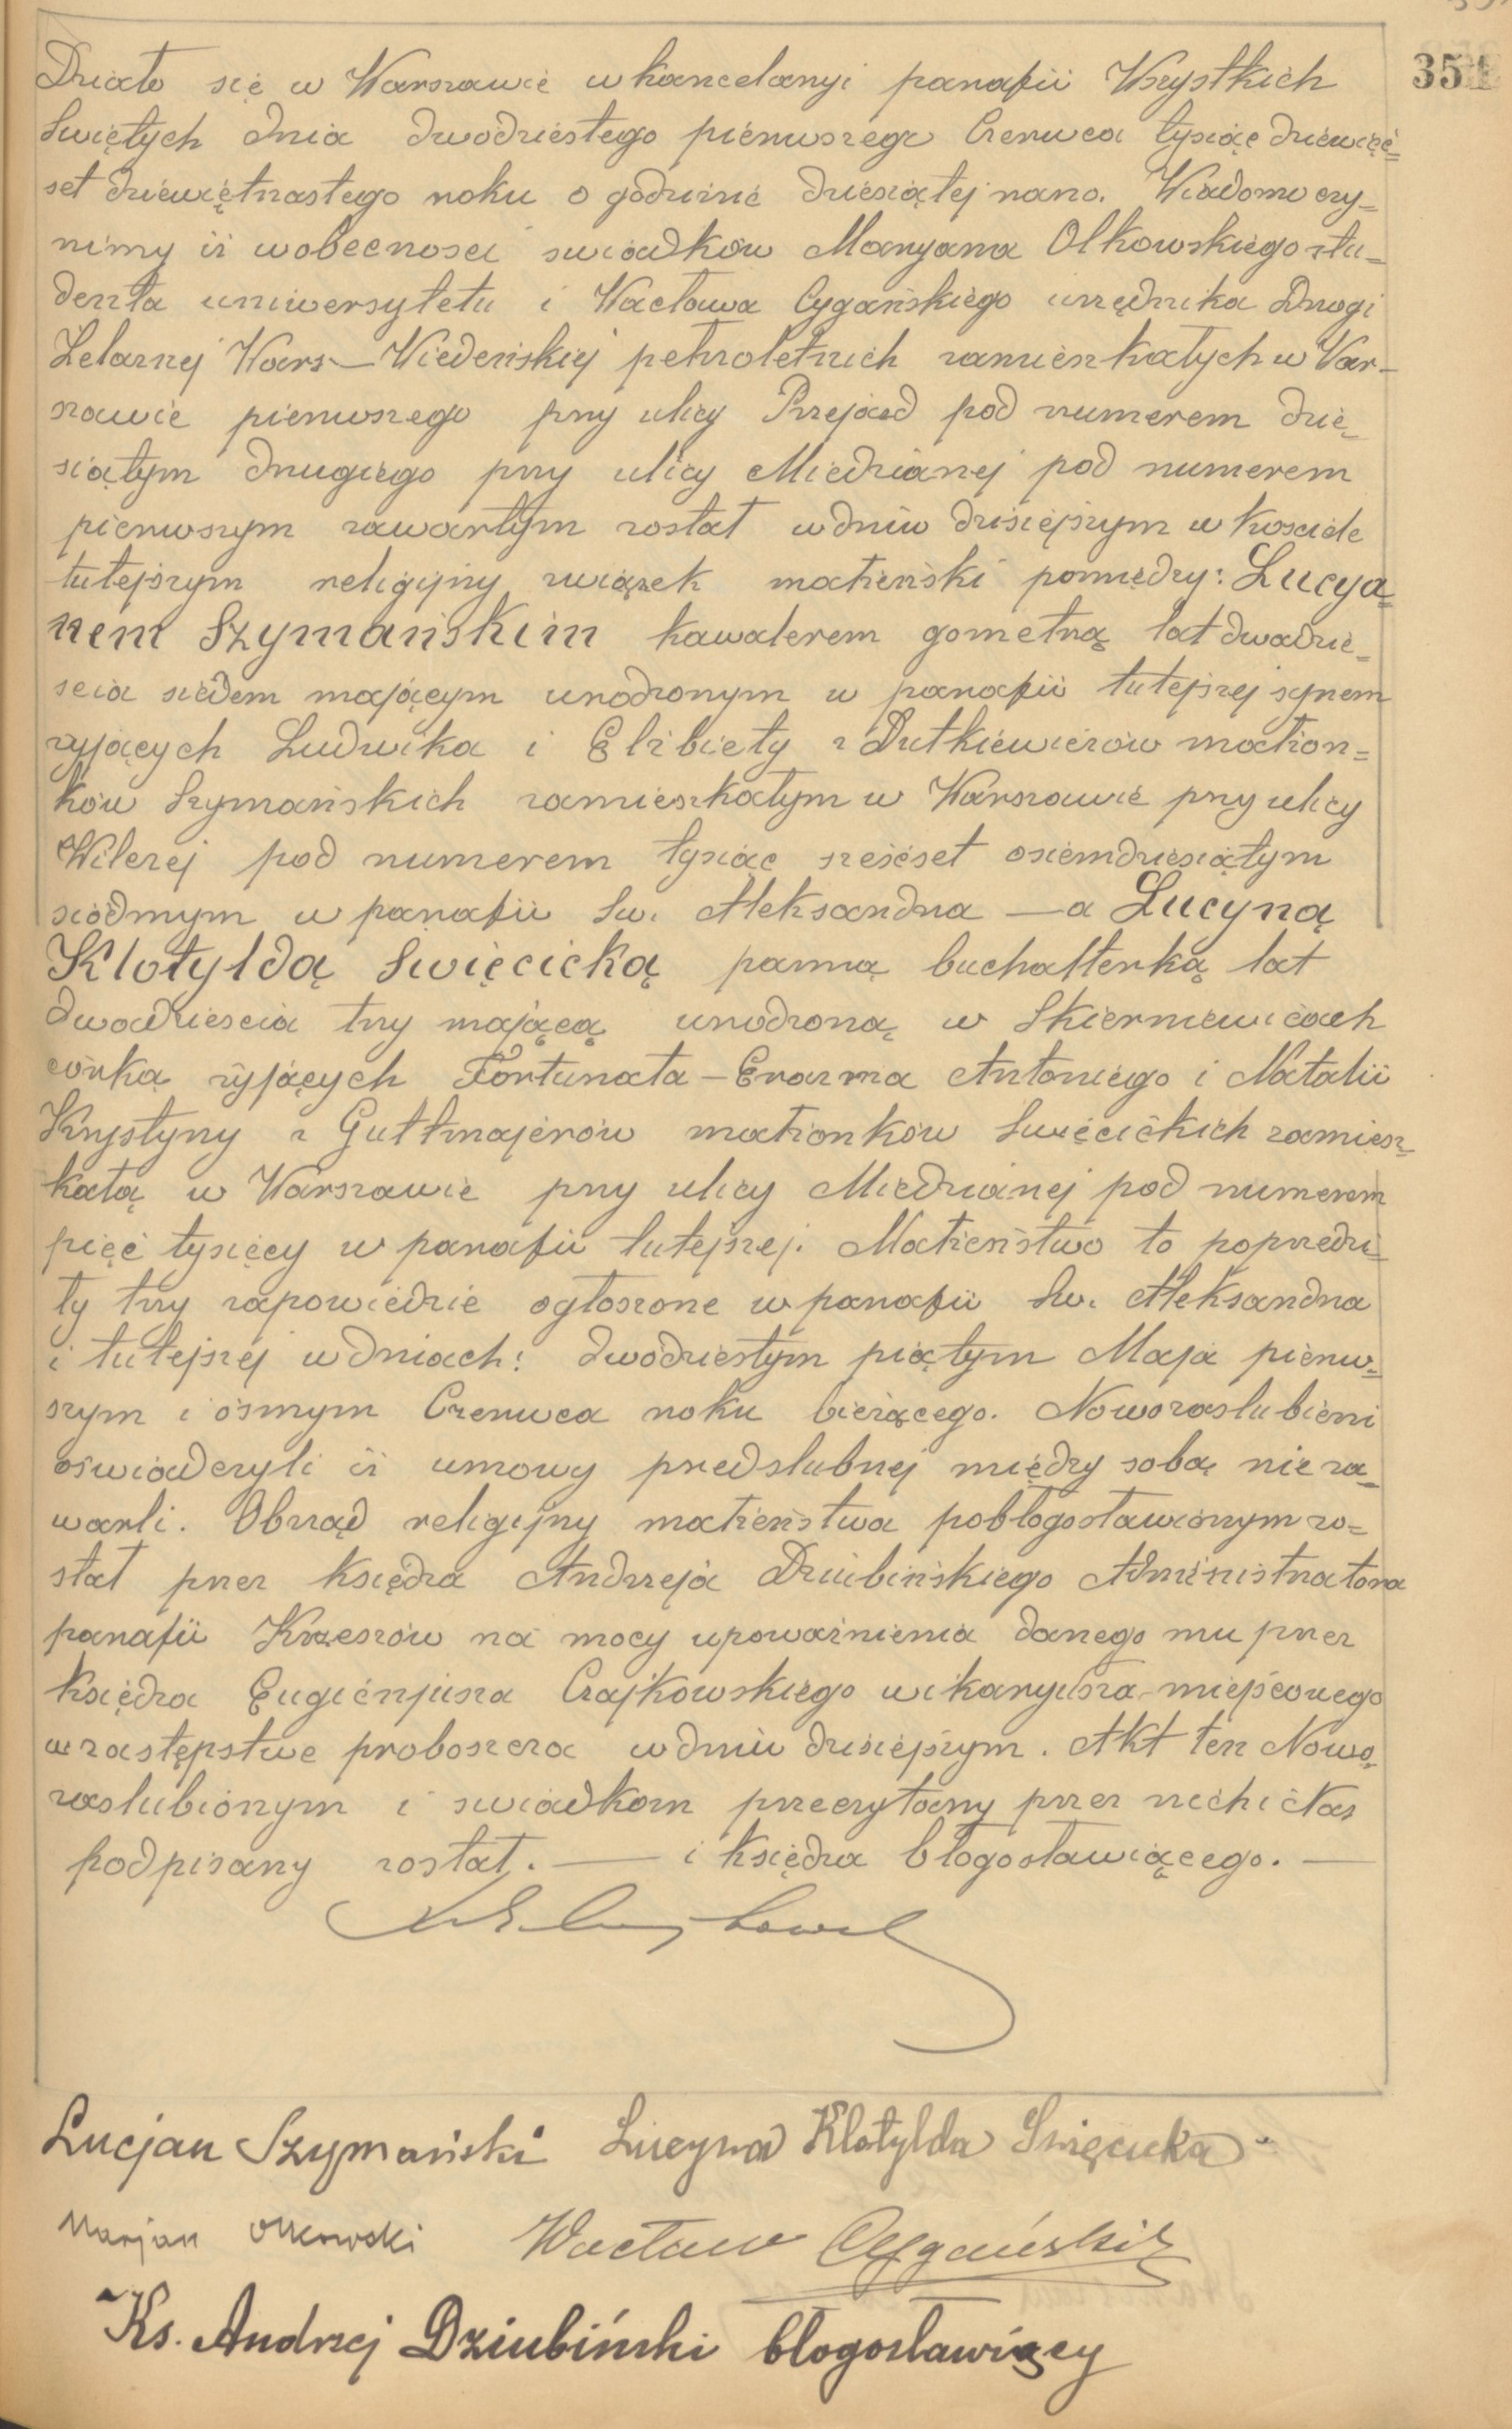 351
Działo się w Warszawie w kancelaryi parafii Wszystkich
Świętych dnia dwudziestego pierwszego Czerwca tysiąc dziewięć=
set dziewiętnastego roku o godzinie dziesiątej rano. Wiadomo czy=
nimy iż wobecności świadków Maryana Olkowskiego stu=
denta uniwersytetu i Wacława Cygańskiego urzędnika Drogi
Żelaznej Wars—Wiedeńskiej pełnoletnich zamieszkałych w War=
szawie pierwszego przy ulicy Przejazd pod numerem dzie=
siątym drugiego przy ulicy Miedzianej pod numerem
pierwszym zawartym został w dniu dzisiejszym w kościele
tutejszym religijny związek małżeński pomiędzy: Lucya=
nem Szymańskim kawalerem gometrą lat dwadzie=
ścia siedem mającym urodzonym w parafii tutejszej synem
żyjących Ludwika i Elżbiety z Dutkiewiczów małżon=
ków Szymańskich zamieszkałym w Warszawie przy ulicy
Wilczej pod numerem tysiąc sześćset osiemdziesiątym
siódmym w parafii Św. Aleksandra — a Lucyną
Klotyldą Święcicką panną buchalterką lat
dwadzieścia trzy mającą urodzoną w Skierniewicach
córką żyjących Fortunata – Erazma Antoniego i Natalii
Krystyny z Guttmajerów małżonków Święcickich zamiesz=
kałą w Warszawie przy ulicy Miedzianej pod numerem
pięć tysięcy w parafii tutejszej. Małżeństwo to poprzedzi=
ły trzy zapowiedzie ogłoszone w parafii Św. Aleksandra
i tutejszej w dniach: dwudziestym piątym Maja pierw=
szym i ósmym Czerwca roku bieżącego. Nowozaslubieni
oświadczyli iż umowy przedslubnej między sobą nie za=
warli. Obrząd religijny małżeństwa pobłogosławionym zo=
stał przez księdza Andrzeja Dziubińskiego Administratora
parafii Krzeszów na mocy upoważnienia danego mu przez
księdza Eugienjusza Czajkowskiego wikaryusza miejscowego
w zastępstwie proboszcza w dniu dzisiejszym. Akt ten Nowo=
zaslubionym i świadkom przeczytany przez nich i Nas
podpisany został. — i księdza błogosławiącego. —
Lucjan Szymański Lucyna Klotylda Święcicka
Marjan Olkowski Wacław Cygański
Ks. Andrzej Dziubiński błogosławiący